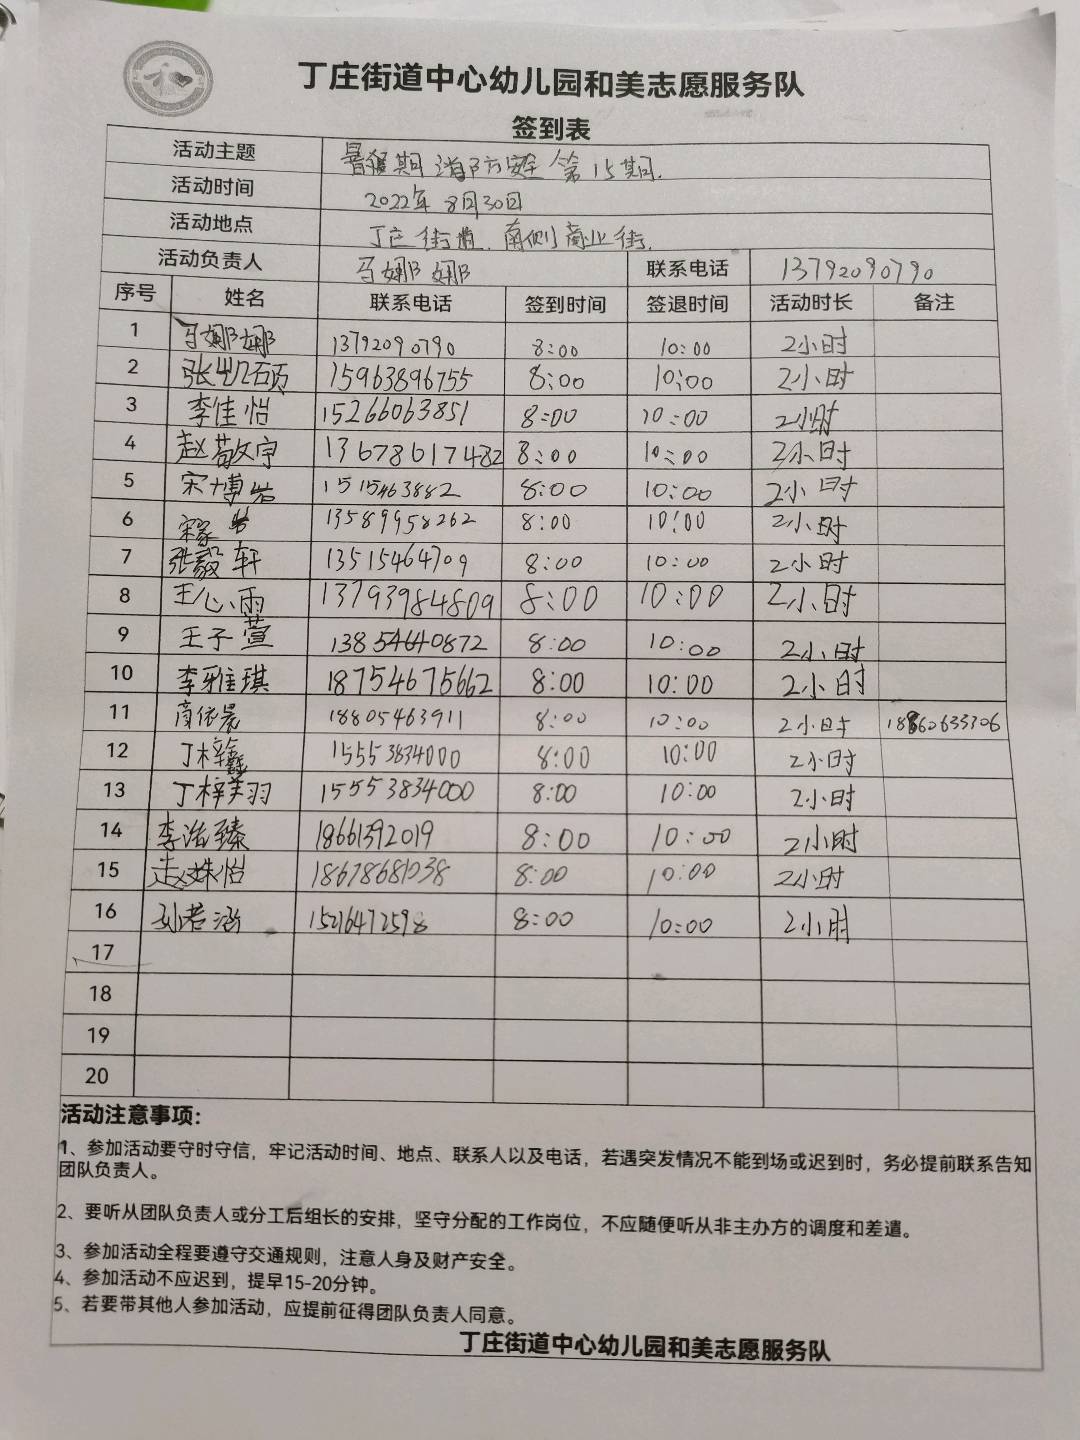 丁庄街道中心幼儿园和美志愿服务队
签到表
活动主题 暑假期消防安全第15期.
活动时间 2022年8月30日
活动地点 丁庄街道.南侧商业街.
活动负责人 马娜娜 联系电话 13792090790
序号 姓名 联系电话 签到时间 签退时间 活动时长 备注
1 马娜娜 13792090790 8:00 10:00 2小时
2 张凯硕 15963896755 8:00 10:00 2小时
3 李佳怡 15266063851 8:00 10:00 2小时
4 赵敬文宇 13678617482 8:00 10:00 2小时
5 宋博岩 1515463882 8:00 10:00 2小时
6 宋家岩 13589958262 8:00 10:00 2小时
7 张毅轩 13515464709 8:00 10:00 2小时
8 王心雨 13793984809 8:00 10:00 2小时
9 王子萱 13854640872 8:00 10:00 2小时
10 李雅琪 18754675662 8:00 10:00 2小时
11 商依晨 18805463911 8:00 10:00 2小时
12 丁梓鑫 15553834000 8:00 10:00 2小时
13 丁梓美羽 15553834000 8:00 10:00 2小时
14 李浩臻 18661392019 8:00 10:00 2小时
15 赵姝怡 18678681038 8:00 10:00 2小时
16 孙若涵 15216472598 8:00 10:00 2小时
17
18
19
20
活动注意事项:
1、参加活动要守时守信，牢记活动时间、地点、联系人以及电话，若遇突发情况不能到场或迟到时，务必提前联系告知
团队负责人。
2、要听从团队负责人或分工后组长的安排，坚守分配的工作岗位，不应随便听从非主办方的调度和差遣。
3、参加活动全程要遵守交通规则，注意人身及财产安全。
4、参加活动不应迟到，提早15-20分钟。
5、若要带其他人参加活动，应提前征得团队负责人同意。
丁庄街道中心幼儿园和美志愿服务队